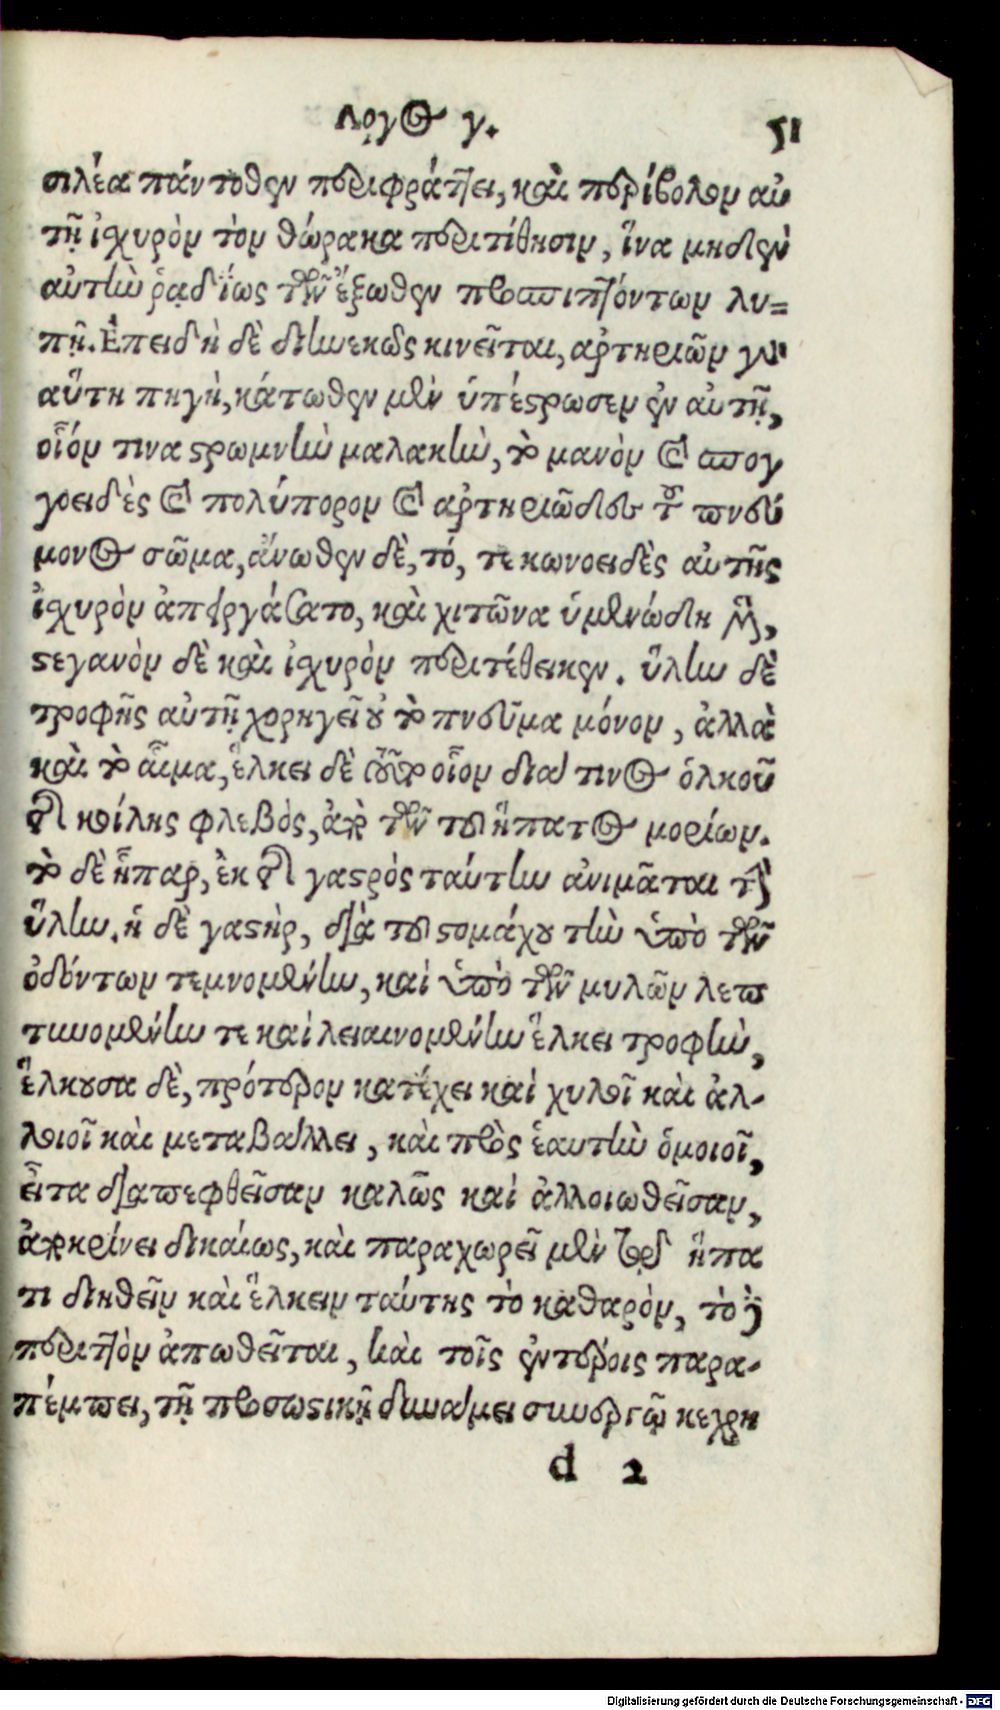 Λόγος γ. 51
σιλέα πάντοθεν περιφράττει, καὶ περίβολον αὐ
τῇ ἰχυρὸν τὸν θώρακα περιτίθησιν, ἵνα μηδὲν
αὐτὴν ῥᾳδίως τῶν ἔξωθεν προσπιπτόντων λυ=
πῇ. Ἐπειδὴ δὲ διηνεκῶς κινεῖται, ἀρτηριῶν γὰρ
αὕτη πηγὴ, κάτωθεν μὲν ὑπέστρωσεν ἐν αὐτῇ,
οἷόν τινα στρωμνὴν μαλακὴν, τὸ μανὸν καὶ σπογ
γοειδὲς καὶ πολύπορον καὶ ἀρτηριῶδες τοῦ πνεύ
μονος σῶμα, ἄνωθεν δὲ, τό, τε κωνοειδὲς αὐτῆς
ἰχυρὸν ἀπειργάσατο, καὶ χιτῶνα ὑμενώδη μὲν,
στεγανὸν δὲ καὶ ἰχυρὸν περιτέθεικεν. ὕλην δὲ
τροφῆς αὐτῇ χορηγεῖ οὐ τὸ πνεῦμα μόνον, ἀλλὰ
καὶ τὸ αἷμα, ἕλκει δὲ τοῦτο οἷον διά τινος ὁλκοῦ
τῆς κοίλης φλεβὸς, ἀπὸ τῶν τοῦ ἥπατος μορίων.
τὸ δὲ ἧπαρ, ἐκ τῆς γαστρὸς ταύτην ἀνιμᾶται τὴν
ὕλην. ἡ δὲ γαστὴρ, διὰ τοῦ στομάχου τὴν ὑπὸ τῶν
ὀδόντων τεμνομένην, καὶ ὑπὸ τῶν μυλῶν λεπ
τυνομένην τε καὶ λειαινομένην ἕλκει τροφὴν,
ἕλκουσα δὲ, πρότερον κατέχει καὶ χυλοῖ καὶ ἀλ-
λοιοῖ καὶ μεταβάλλει, καὶ πρὸς ἑαυτὴν ὁμοιοῖ,
εἶτα διαπεφθεῖσαν καλῶς καὶ ἀλλοιωθεῖσαν,
ἀποκρίνει δικαίως, καὶ παραχωρεῖ μὲν τῷ ἥπα
τι διηθεῖν καὶ ἕλκειν ταύτης τὸ καθαρὸν, τὸ δὲ
περιττὸν ἀπωθεῖται, καὶ τοῖς ἐντέροις παρα-
πέμπει, τῇ προσωστικῇ δυνάμει συνεργῷ κεχρη
d 2
Digitalisierung gefördert durch die Deutsche Forschungsgemeinschaft - DFG